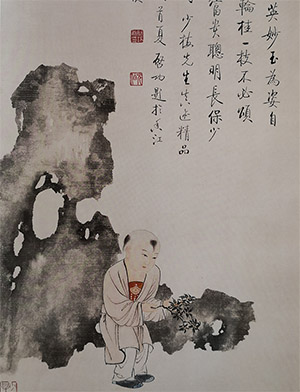 英妙玉為姿自
輪桂一枝不必頌
富貴聰明長保少
少梅先生真迹精品
首夏啟功題於香江